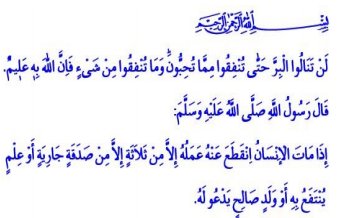 بِسْمِ اللهِ الرَّحْمٰنِ الرَّحِيمِ
لَنْ تَنَالُوا الْبِرَّ حَتّٰى تُنْفِقُوا مِمَّا تُحِبُّونَۜ وَمَا تُنْفِقُوا مِنْ شَىْءٍ فَاِنَّ اللّٰهَ بِهٖ عَلٖيمٌ.
قَالَ رَسُولُ اللَّهِ صَلَّى اللَّهُ عَلَيْهِ وَسَلَّمَ:
إِذَا مَاتَ الْإِنْسَانُ اِنْقَطَعَ عَنْهُ عَمَلُهُ إِلاَّ مِنْ ثَلاَثَةٍ إِلاَّ مِنْ صَدَقَةٍ جَارِيَةٍ أَوْ عِلْمٍ
يُنْتَفَعُ بِهِ أَوْ وَلَدٍ صَالِحٍ يَدْعُو لَهُ.